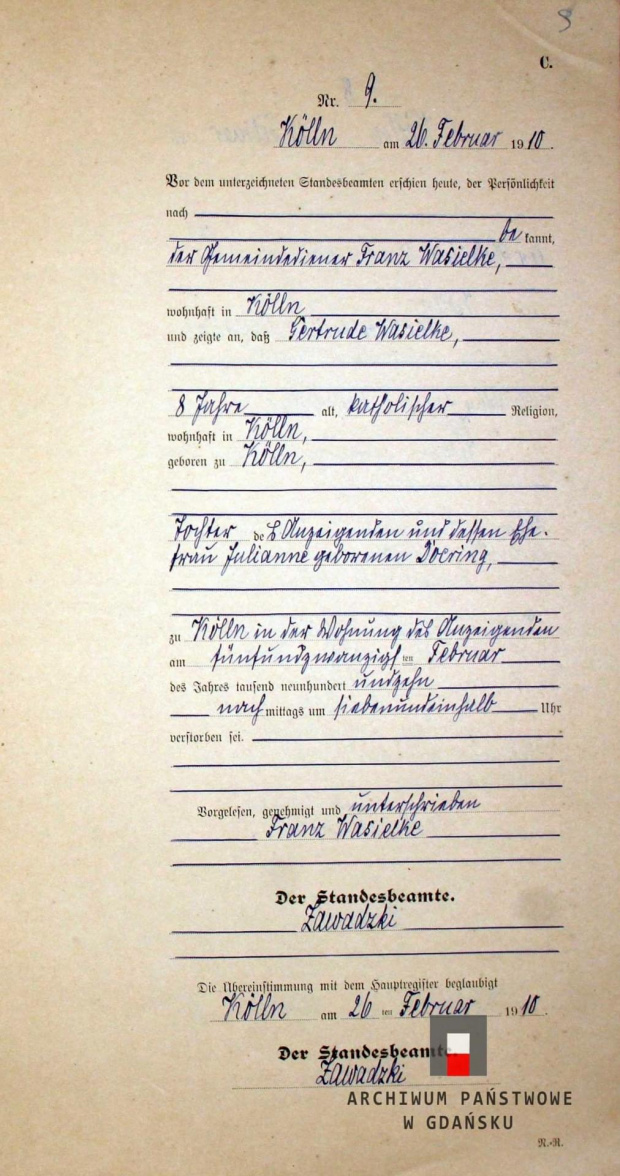 9
C.
Nr. 9.
Kölln am 26. Februar 1910.
Vor dem unterzeichneten Standesbeamten erschien heute, der Persönlichkeit
nach
bekannt,
der Gemeindediener Franz Wasielke,
wohnhaft in Kölln
und zeigte an, daß Gertrude Wasielke,
8 Jahre alt, katholischer Religion,
wohnhaft in Kölln,
geboren zu Kölln,
Tochter des Anzeigenden und dessen Ehe-
frau Julianne geborenen Doering,
zu Kölln in der Wohnung des Anzeigenden
am fünfundzwanzigsten Februar
des Jahres tausend neunhundert undzehn
nachmittags um siebenundeinhalb Uhr
verstorben sei.
Vorgelesen, genehmigt und unterschrieben
Franz Wasielke
Der Standesbeamte.
Zawadzki
Die Übereinstimmung mit dem Hauptregister beglaubigt
Kölln am 26ten Februar 1910.
Der Standesbeamte.
Zawadzki
ARCHIWUM PAŃSTWOWE
W GDAŃSKU
N.-R.